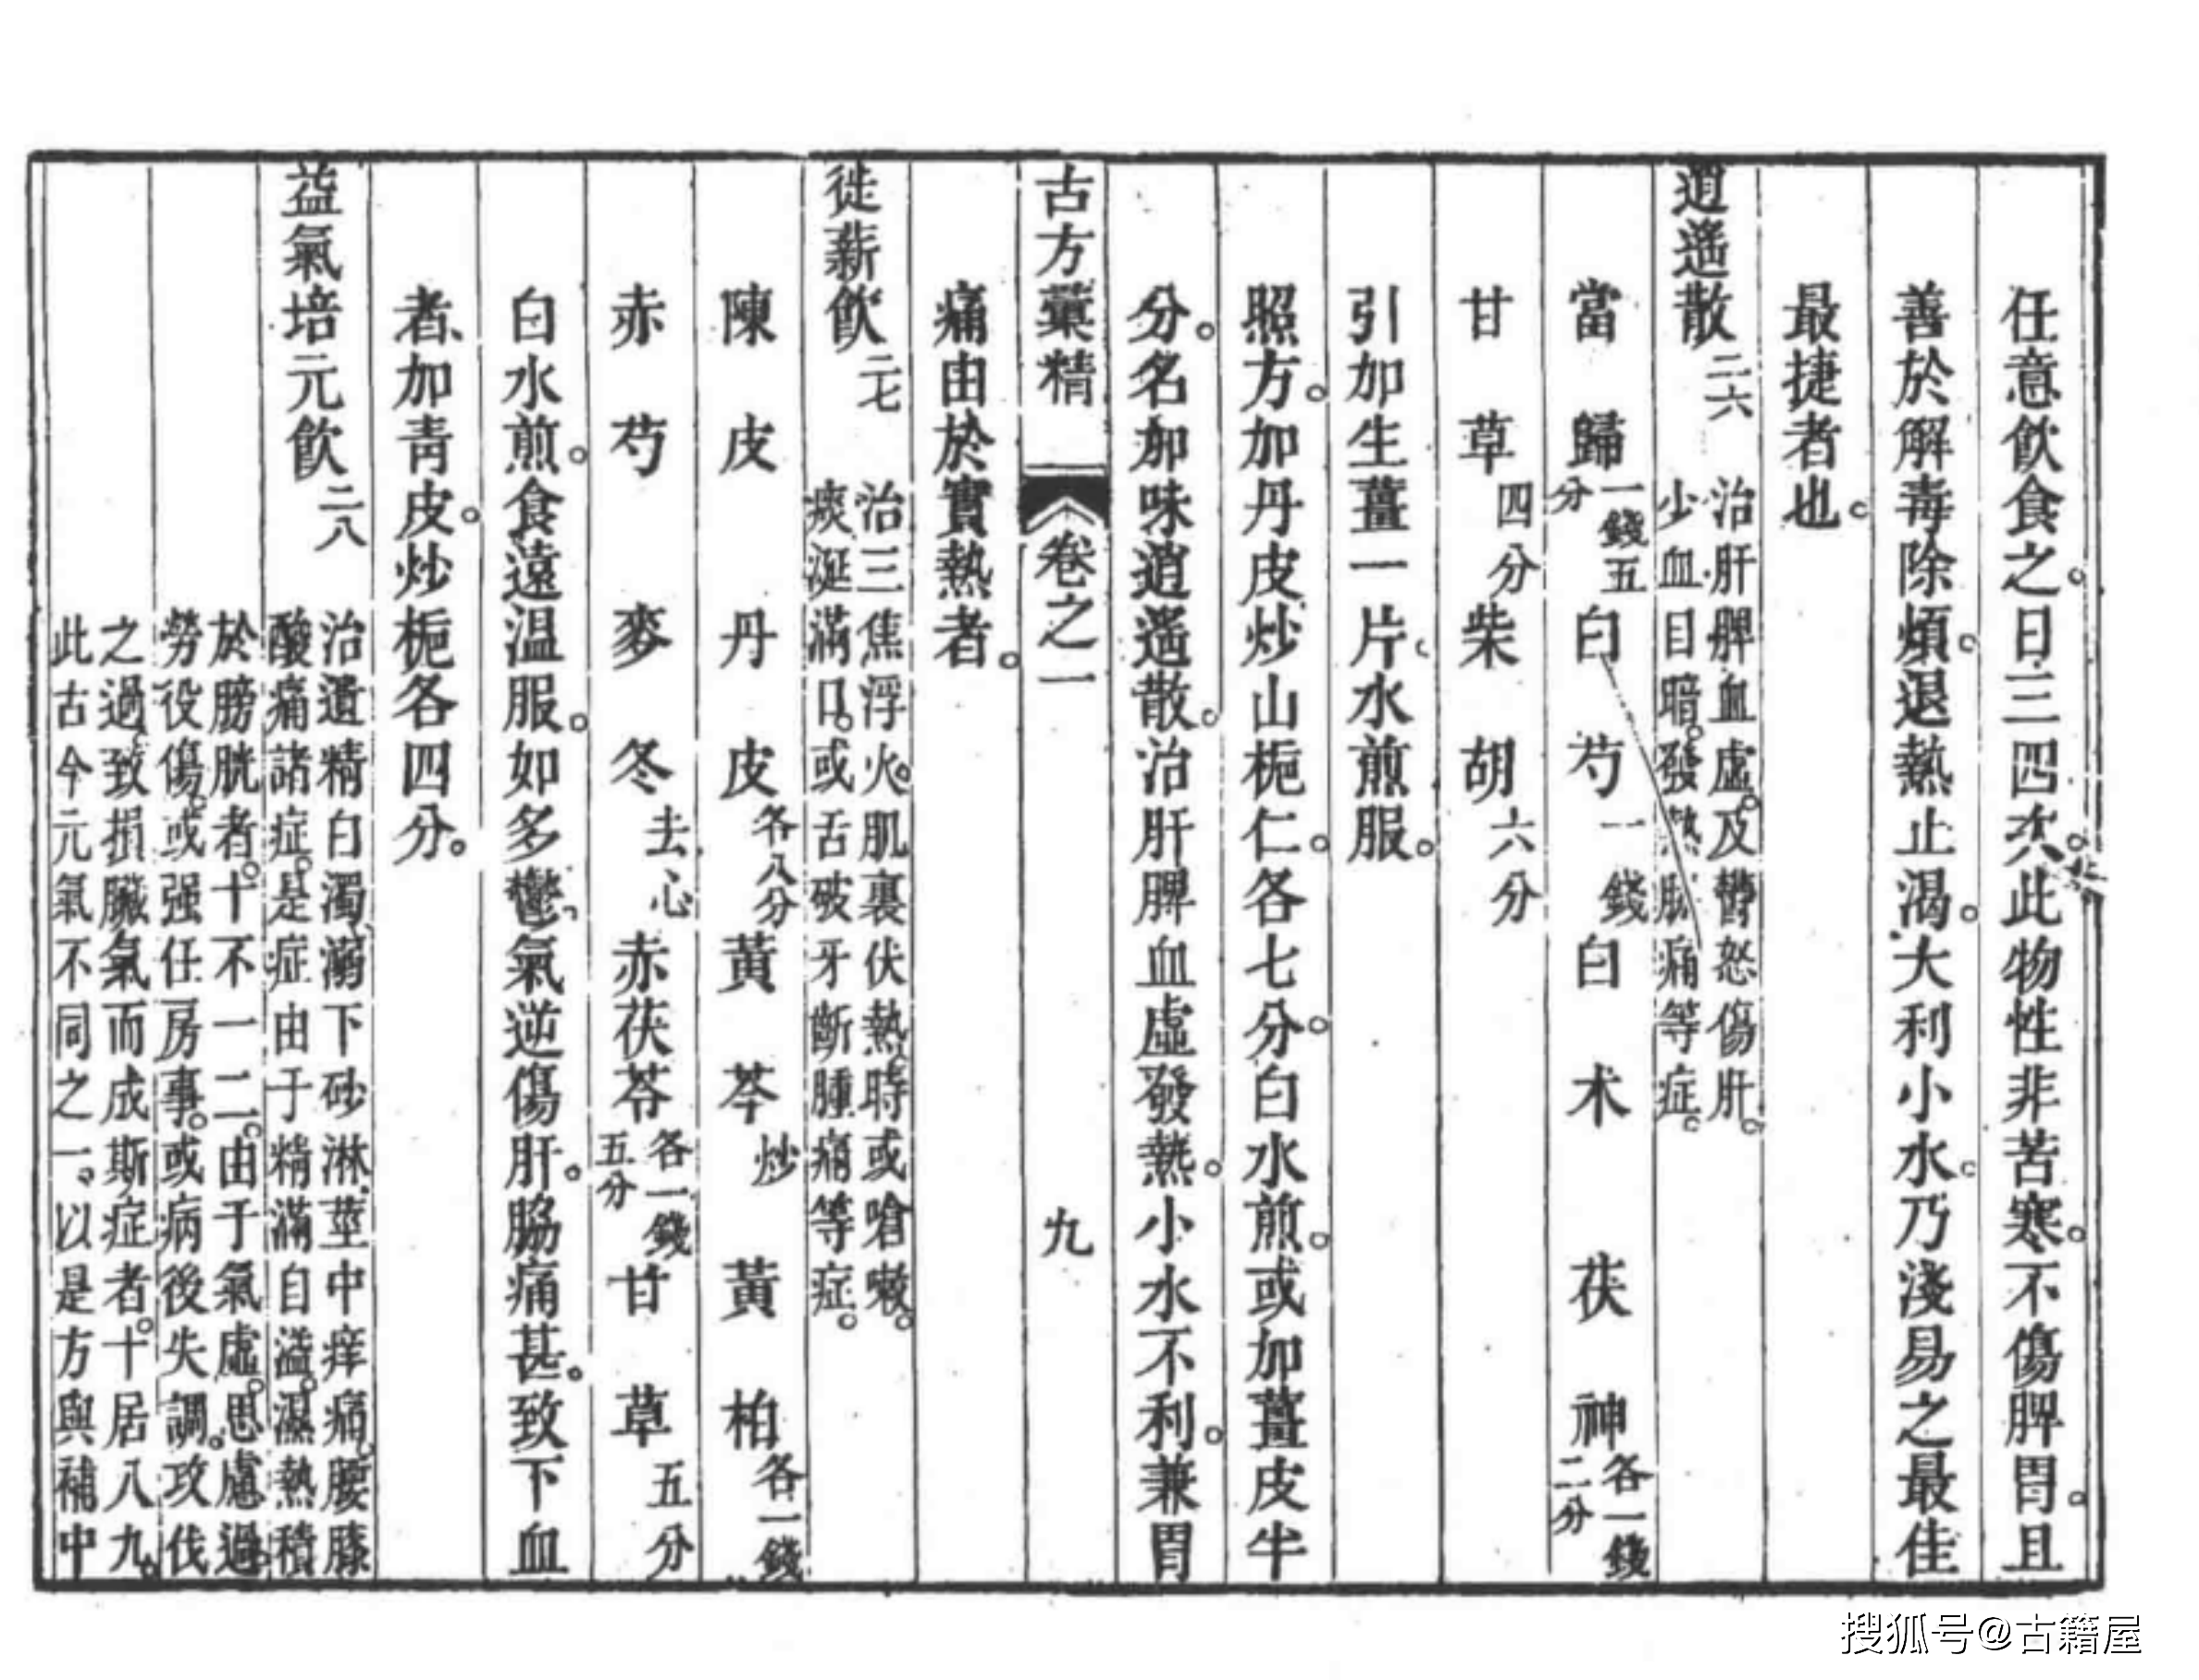 任意飲食之。日三四次。此物性非苦寒。不傷脾胃。且
善於解毒除煩。退熱止渴。大利小水。乃淺易之最佳
最捷者也。
逍遙散二六
治肝脾血虛。及鬱怒傷肝。
少血目暗。發熱脇痛等症。
當歸一錢五分 白芍一錢 白术 茯神各一錢二分
甘草四分 柴胡六分
引加生薑一片。水煎服。
照方。加丹皮炒山梔仁。各七分。白水煎。或加薑皮半
分。名加味逍遙散。治肝脾血虛發熱。小水不利。兼胃
古方彙精 卷之一 九
痛由於實熱者。
徙薪飲二七
治三焦浮火。肌裏伏熱。時或嗆嗽。
痰涎滿口。或舌破牙齗腫痛等症。
陳皮 丹皮各八分 黃芩炒 黃柏各一錢
赤芍 麥冬去心 赤茯苓各一錢五分 甘草五分
白水煎。食遠温服。如多鬱、氣逆傷肝。脇痛甚。致下血
者、加青皮。炒梔各四分。
益氣培元飲二八
治遺精白濁、溺下砂淋、莖中痒痛、腰膝
酸痛諸症。是症由于精滿自溢。濕熱積
於膀胱者。十不一二。由于氣虛。思慮過
勞役傷。或强任房事。或病後失調。攻伐
之過、致損臟氣而成斯症者。十居八九。
此古今元氣不同之一、以是方與補中
搜狐号@古籍屋